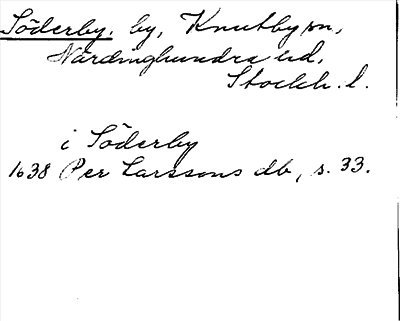 Söderby, by, Knutby sn,
Närdinghundra hd,
Stockh. l.
i Söderby
1638 Per Larssons db, s. 33.